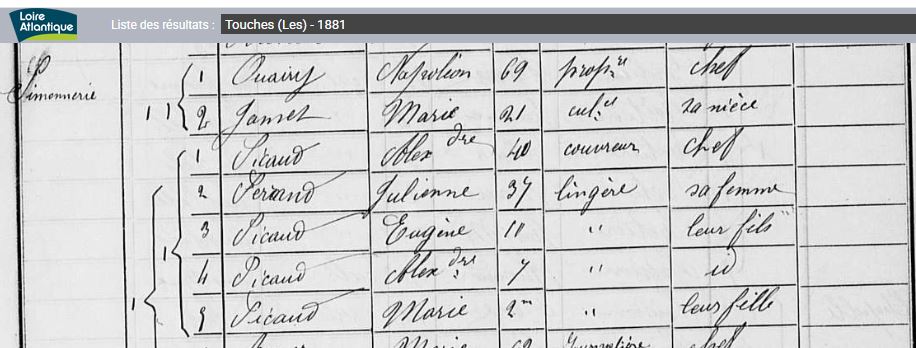 Loire Atlantique Liste des résultats : Touches (Les) - 1881
1 Napoléon 69 propre chef
Simonnerie
2 Jamet Marie 21 culr sa nièce
1 Picaud Alexdre 40 couvreur chef
2 Feraud Julienne 37 lingère sa femme
3 Picaud Eugène 11 " leur fils
4 Picaud Alexdre 7 " id
5 Picaud Marie 2m " leur fille